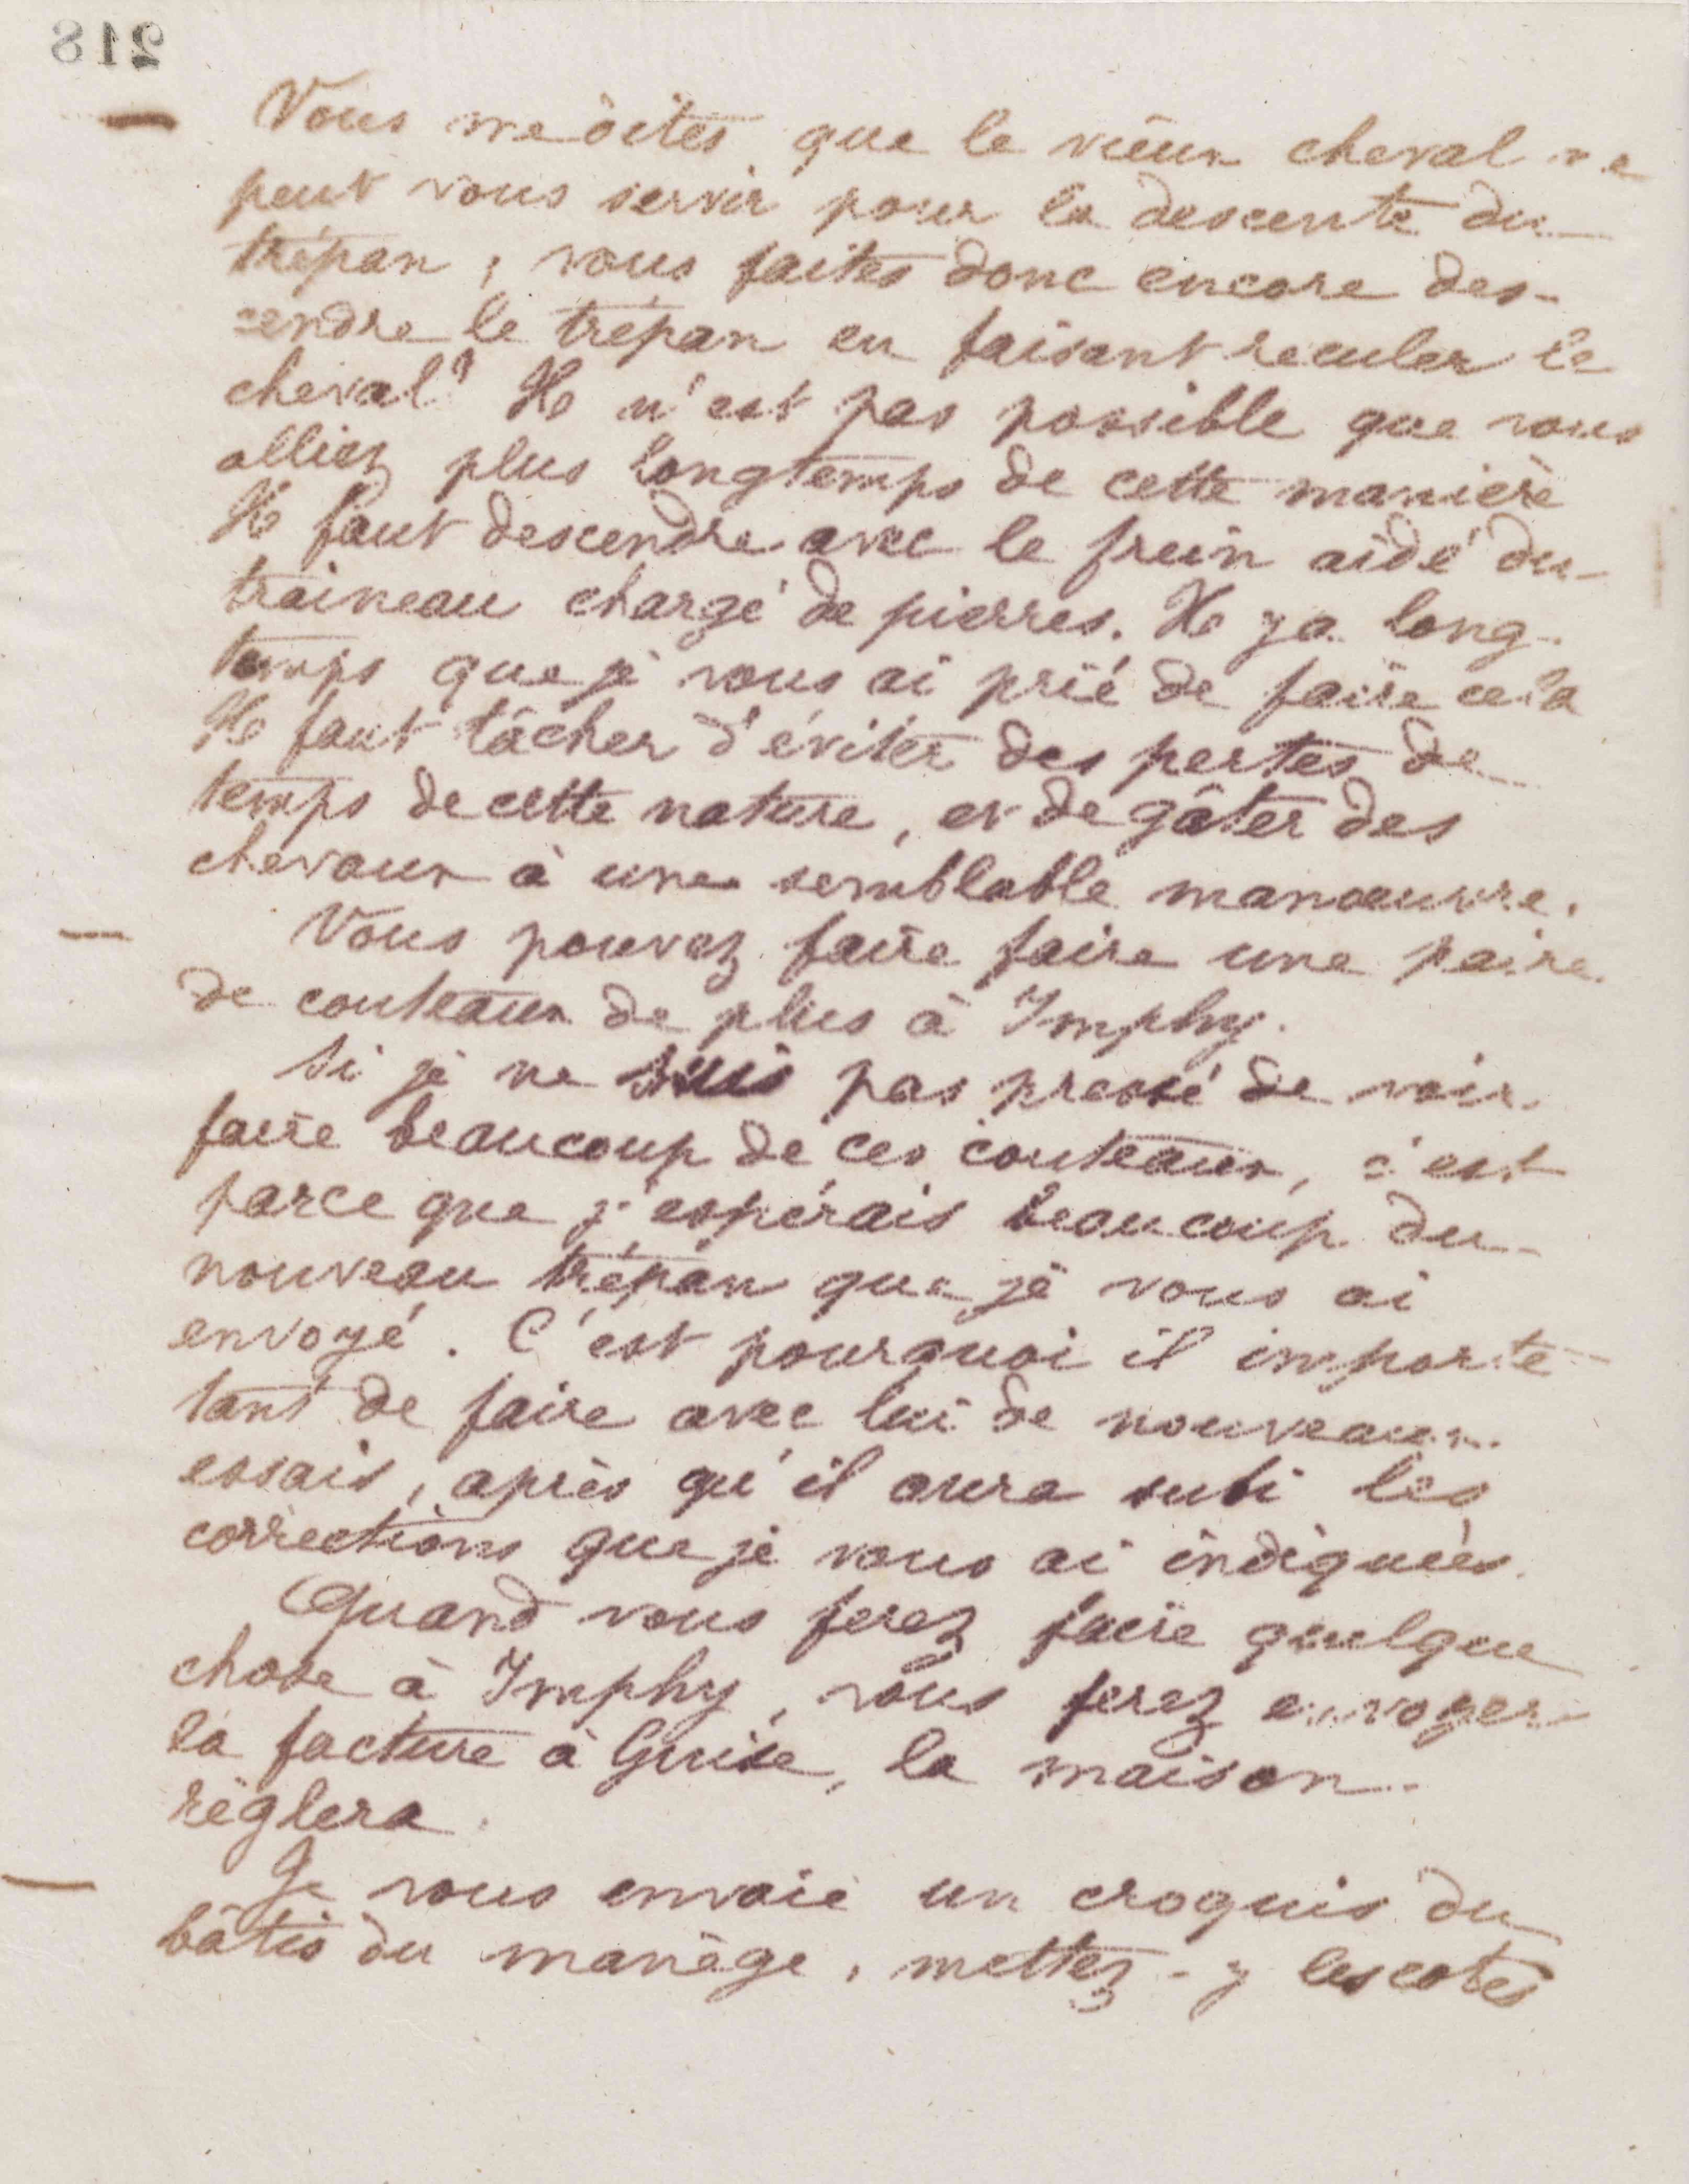 218
Vous me dites que le vieux cheval ne
peut vous servir pour la descente du
trépan, vous faites donc encore des-
cendre le trépan en faisant reculer le
cheval? Il n'est pas possible que vous
alliez plus longtemps de cette manière
Il faut descendre avec le frein aidé du
traineau chargé de pierres. Il y a long-
temps que je vous ai prié de faire cela
Il faut tâcher d'éviter des pertes de
temps de cette nature, et de gâter des
chevaux à une semblable manoeuvre.
Vous pouvez faire faire une paire
de couteaux de plus à Imphy.
Si je ne suis pas pressé de voir
faire beaucoup de ces couteaux, c'est
parce que j'espérais beaucoup du
nouveau trépan que je vous ai
envoyé. C'est pourquoi il importe
tant de faire avec lui de nouveaux
essais, après qu'il aura subi les
corrections que je vous ai indiquées.
Quand vous ferez faire quelque
chose à Imphy, vous ferez envoyer
la facture à Guise, la maison
règlera.
Je vous envoie un croquis du
bâtis du manège, mettez-y les cotes